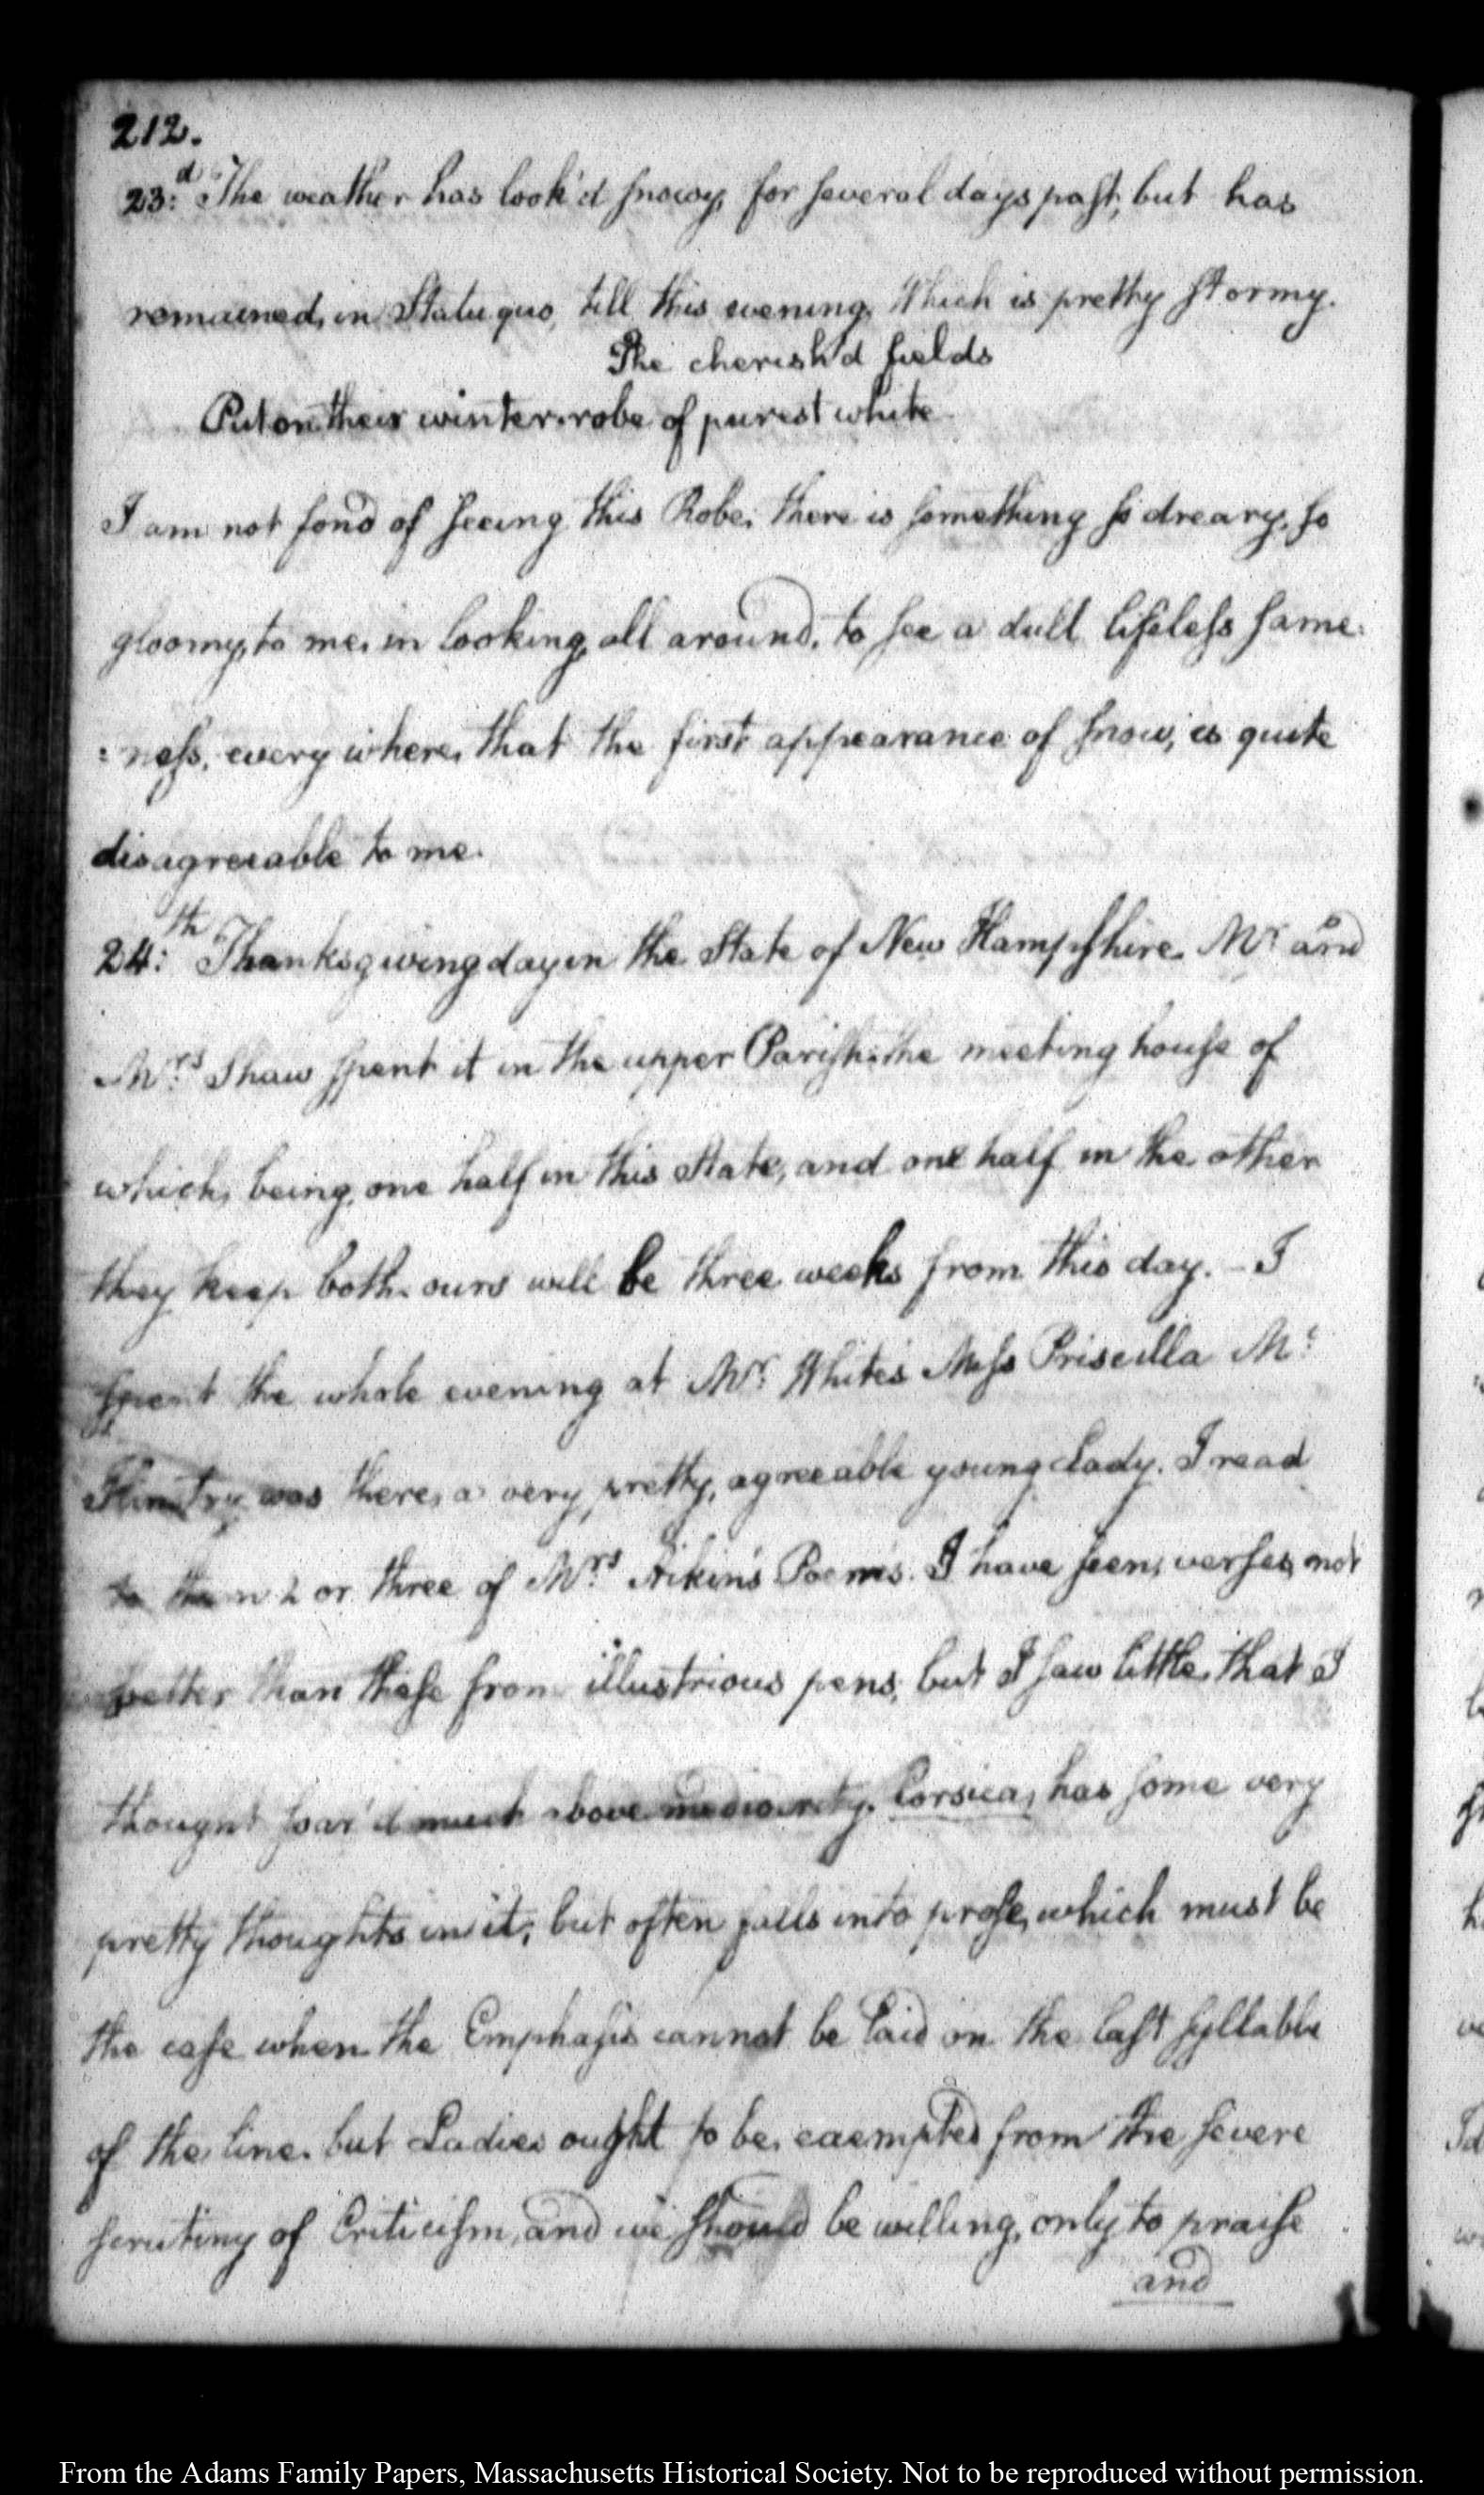 212.
23:d The weather has look'd snowy, for several days past, but has
remained, in Statu quo, till this evening, Which is pretty stormy.
The cherish'd fields
Put on their winter-robe of purest white
I am not fond of seeing this Robe, there is something so dreary, so
gloomy, to me, in looking, all around, to see a dull lifeless same-
:ness, every where, that the first appearance of snow, is quite
disagreeable to me.
24:th Thanksgiving day in the State of New Hampshire. Mr. and
Mrs. Shaw spent it in the upper Parish: the meeting house of
which, being, one half in this State, and one half in the other
they keep both. ours will be three weeks from this day. - I
spent the whole evening at Mr. White's Miss Priscilla Mc
was there, a very, pretty, agreeable young Lady. I read
to them 2 or three of Mrs. Aikin's Poems. I have seen, verses, not
better than these from illustrious pens, but I saw little, that I
thought soar'd much above mediocrity. Corsica, has some very
pretty thoughts in it; but often falls into prose, which must be
the case when the Emphasis cannot be laid on the last syllable
of the line. but Ladies ought to be, exempted from the severe
scrutiny of Criticism, and we should be willing, only to praise
and
From the Adams Family Papers, Massachusetts Historical Society. Not to be reproduced without permission.